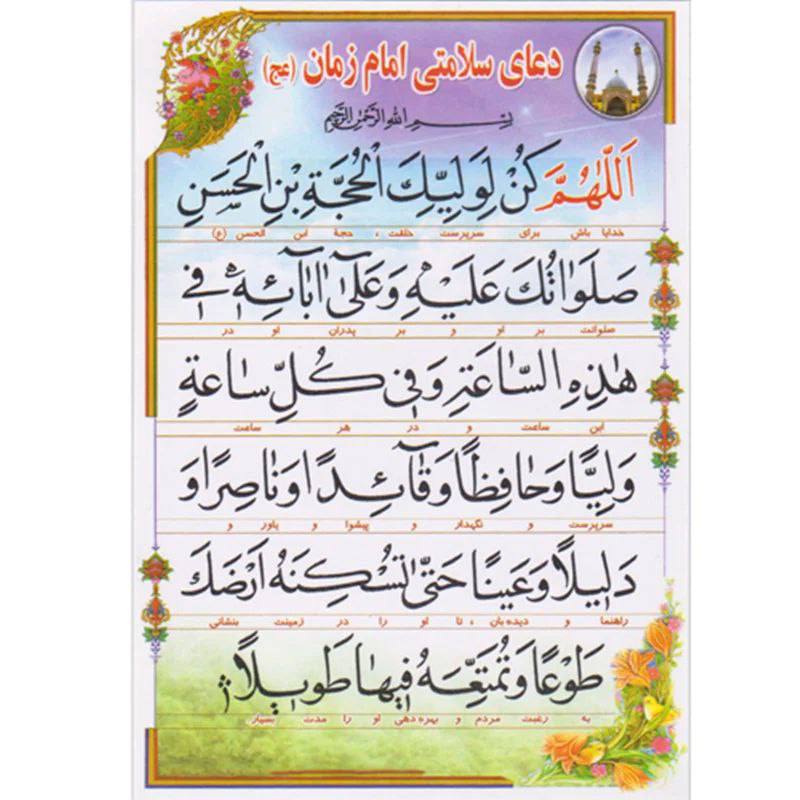 دعای سلامتی امام زمان (عج)
بِسْمِ اللهِ الرَّحْمٰنِ الرَّحِيمِ
اَللّٰهُمَّ كُنْ لِوَلِيِّكَ الْحُجَّةِ بْنِ الْحَسَنِ
خدایا باش برای سرپرست خلقت، حجة ابن الحسن (ع)
صَلَوَاتُكَ عَلَيْهِ وَعَلٰى اٰبَآئِهٖ فِي
صلواتت بر او و بر پدران او در
هٰذِهِ السَّاعَةِ وَفِي كُلِّ سَاعَةٍ
این ساعت و در هر ساعت
وَلِيًّا وَحَافِظًا وَقَآئِدًا وَنَاصِرًا وَ
سرپرست و نگهدار و پیشوا و یاور و
دَلِيلًا وَعَيْنًا حَتّٰى تُسْكِنَهُ اَرْضَكَ
راهنما و دیده بان، تا او را در زمینت بنشانی
طَوْعًا وَتُمَتِّعَهُ فِيهَا طَوِيلًا
به رغبت مردم و بهره دهی او را مدت بسیار